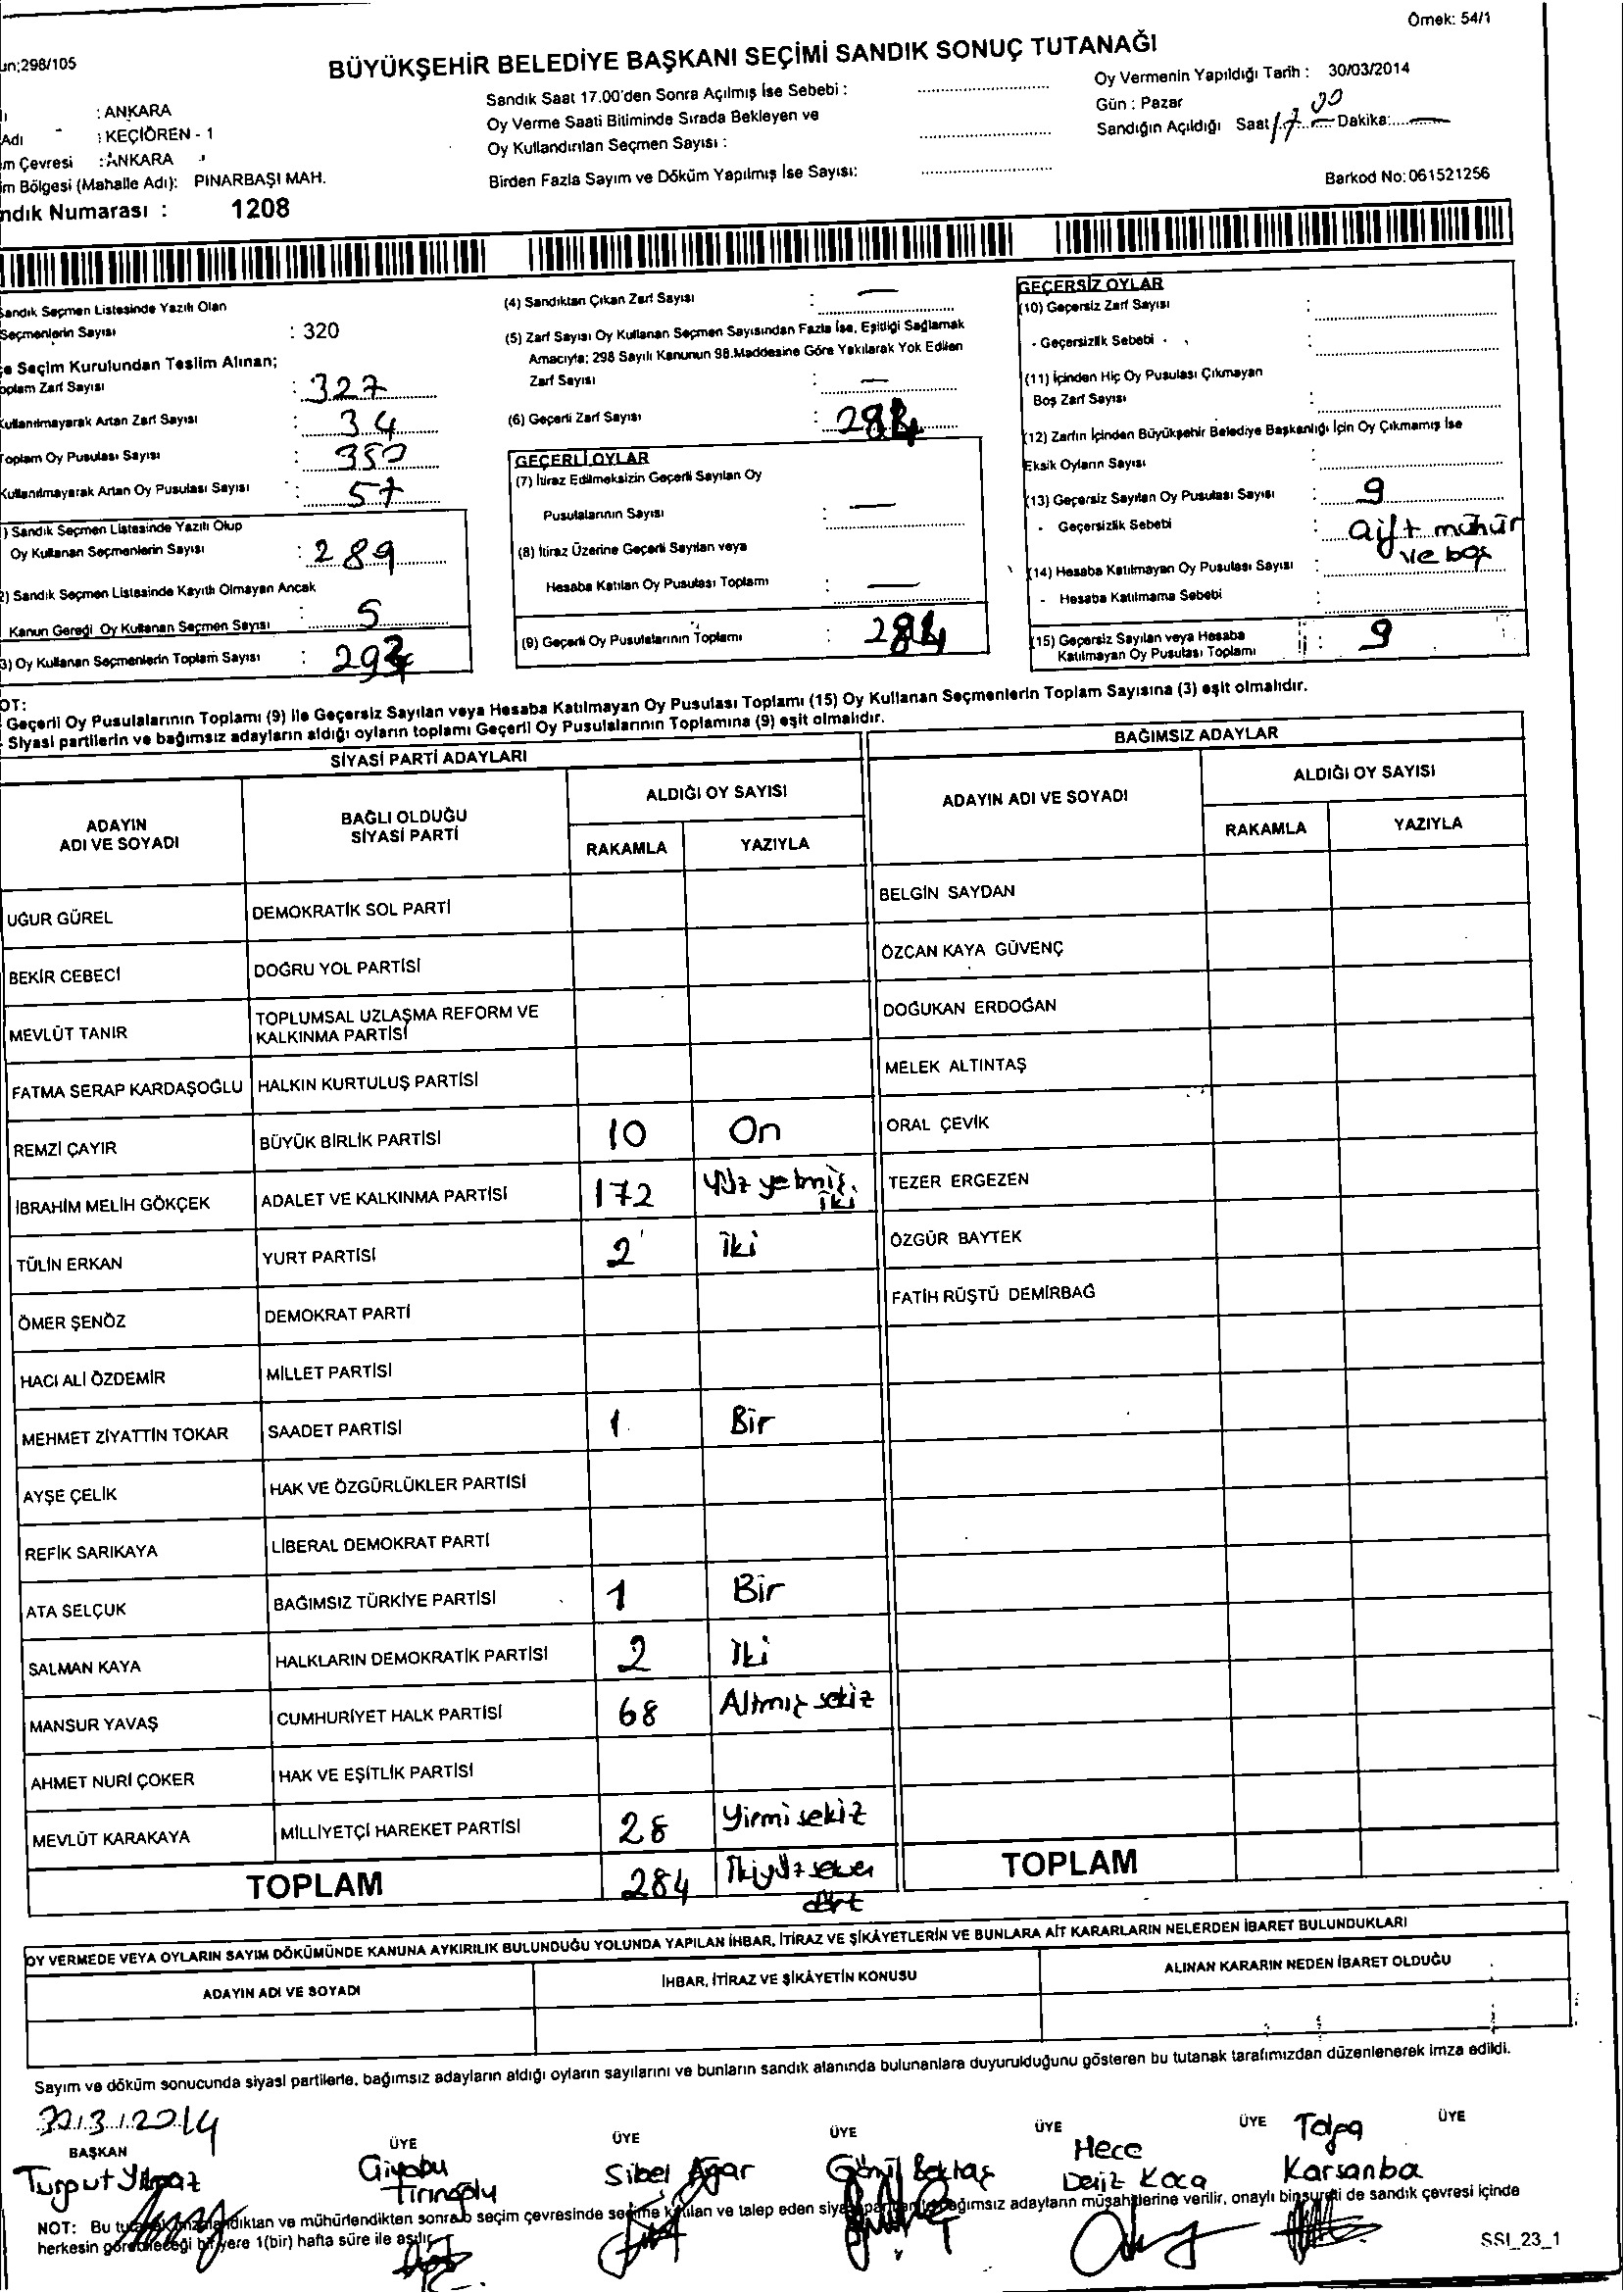 Örnek: 54/1
un;298/105
BÜYÜKŞEHİR BELEDİYE BAŞKANI SEÇİMİ SANDIK SONUÇ TUTANAĞI
: ANKARA
Adı : KEÇİÖREN - 1
m Çevresi : ANKARA
im Bölgesi (Mahalle Adı): PINARBAŞI MAH.
ndık Numarası : 1208
Sandık Saat 17.00'den Sonra Açılmış İse Sebebi :
Oy Verme Saati Bitiminde Sırada Bekleyen ve
Oy Kullandırılan Seçmen Sayısı :
Birden Fazla Sayım ve Döküm Yapılmış İse Sayısı:
Oy Vermenin Yapıldığı Tarih : 30/03/2014
Gün : Pazar
Sandığın Açıldığı Saat 17.00 Dakika:
Barkod No: 061521256
Sandık Seçmen Listesinde Yazılı Olan
Seçmenlerin Sayısı : 320
çe Seçim Kurulundan Teslim Alınan;
oplam Zarf Sayısı : 327
Kullanılmayarak Artan Zarf Sayısı : 34
Toplam Oy Pusulası Sayısı : 350
Kullanılmayarak Artan Oy Pusulası Sayısı : 57
) Sandık Seçmen Listesinde Yazılı Olup
Oy Kullanan Seçmenlerin Sayısı : 289
2) Sandık Seçmen Listesinde Kayıtlı Olmayan Ancak
Kanun Gereği Oy Kullanan Seçmen Sayısı : 5
3) Oy Kullanan Seçmenlerin Toplam Sayısı :
(4) Sandıktan Çıkan Zarf Sayısı : —
(5) Zarf Sayısı Oy Kullanan Seçmen Sayısından Fazla İse, Eşitliği Sağlamak
Amacıyla; 298 Sayılı Kanunun 98.Maddesine Göre Yakılarak Yok Edilen
Zarf Sayısı : —
(6) Geçerli Zarf Sayısı : 284
GEÇERLİ OYLAR
(7) İtiraz Edilmeksizin Geçerli Sayılan Oy
Pusulalarının Sayısı : —
(8) İtiraz Üzerine Geçerli Sayılan veya
Hesaba Katılan Oy Pusulası Toplamı : —
(9) Geçerli Oy Pusulalarının Toplamı : 284
GEÇERSİZ OYLAR
(10) Geçersiz Zarf Sayısı :
- Geçersizlik Sebebi :
(11) İçinden Hiç Oy Pusulası Çıkmayan
Boş Zarf Sayısı :
(12) Zarfın İçinden Büyükşehir Belediye Başkanlığı İçin Oy Çıkmamış İse
Eksik Oyların Sayısı :
(13) Geçersiz Sayılan Oy Pusulası Sayısı : 9
- Geçersizlik Sebebi : Çift mühür
ve boş
(14) Hesaba Katılmayan Oy Pusulası Sayısı :
- Hesaba Katılmama Sebebi :
(15) Geçersiz Sayılan veya Hesaba
Katılmayan Oy Pusulası Toplamı : 9
OT:
Geçerli Oy Pusulalarının Toplamı (9) ile Geçersiz Sayılan veya Hesaba Katılmayan Oy Pusulası Toplamı (15) Oy Kullanan Seçmenlerin Toplam Sayısına (3) eşit olmalıdır.
- Siyasi partilerin ve bağımsız adayların aldığı oyların toplamı Geçerli Oy Pusulalarının Toplamına (9) eşit olmalıdır.
SİYASİ PARTİ ADAYLARI
BAĞIMSIZ ADAYLAR
ADAYIN ADI VE SOYADI
BAĞLI OLDUĞU SİYASİ PARTİ
ALDIĞI OY SAYISI
RAKAMLA YAZIYLA
ADAYIN ADI VE SOYADI
ALDIĞI OY SAYISI
RAKAMLA YAZIYLA
UĞUR GÜREL DEMOKRATİK SOL PARTİ BELGİN SAYDAN
BEKİR CEBECİ DOĞRU YOL PARTİSİ ÖZCAN KAYA GÜVENÇ
MEVLÜT TANIR TOPLUMSAL UZLAŞMA REFORM VE KALKINMA PARTİSİ DOĞUKAN ERDOĞAN
FATMA SERAP KARDAŞOĞLU HALKIN KURTULUŞ PARTİSİ MELEK ALTINTAŞ
REMZİ ÇAYIR BÜYÜK BİRLİK PARTİSİ 10 On ORAL ÇEVİK
İBRAHİM MELİH GÖKÇEK ADALET VE KALKINMA PARTİSİ 172 Yüz yetmiş iki TEZER ERGEZEN
TÜLİN ERKAN YURT PARTİSİ 2 İki ÖZGÜR BAYTEK
ÖMER ŞENÖZ DEMOKRAT PARTİ FATİH RÜŞTÜ DEMİRBAĞ
HACI ALİ ÖZDEMİR MİLLET PARTİSİ
MEHMET ZİYATTİN TOKAR SAADET PARTİSİ 1 Bir
AYŞE ÇELİK HAK VE ÖZGÜRLÜKLER PARTİSİ
REFİK SARIKAYA LİBERAL DEMOKRAT PARTİ
ATA SELÇUK BAĞIMSIZ TÜRKİYE PARTİSİ 1 Bir
SALMAN KAYA HALKLARIN DEMOKRATİK PARTİSİ 2 İki
MANSUR YAVAŞ CUMHURİYET HALK PARTİSİ 68 Altmış sekiz
AHMET NURİ ÇOKER HAK VE EŞİTLİK PARTİSİ
MEVLÜT KARAKAYA MİLLİYETÇİ HAREKET PARTİSİ 28 Yirmi sekiz
TOPLAM 284 İkiyüz seksen dört TOPLAM
OY VERMEDE VEYA OYLARIN SAYIM DÖKÜMÜNDE KANUNA AYKIRILIK BULUNDUĞU YOLUNDA YAPILAN İHBAR, İTİRAZ VE ŞİKÂYETLERİN VE BUNLARA AİT KARARLARIN NELERDEN İBARET BULUNDUKLARI
ADAYIN ADI VE SOYADI İHBAR, İTİRAZ VE ŞİKÂYETİN KONUSU ALINAN KARARIN NEDEN İBARET OLDUĞU
Sayım ve döküm sonucunda siyasi partilerle, bağımsız adayların aldığı oyların sayılarını ve bunların sandık alanında bulunanlara duyurulduğunu gösteren bu tutanak tarafımızdan düzenlenerek imza edildi.
30.13.1.2014
BAŞKAN ÜYE ÜYE ÜYE ÜYE ÜYE ÜYE
Turgut Yılmaz
Sibel Ağar
Gönül Bektaş
Hece
Deniz Koca
Tolga
Karsanba
NOT: Bu tutanak imzalandıktan ve mühürlendikten sonra o seçim çevresinde seçime katılan ve talep eden siyasi partilerin bağımsız adayların müşahitlerine verilir, onaylı bir sureti de sandık çevresi içinde
herkesin görebileceği bir yere 1(bir) hafta süre ile asılır.
SSI_23_1